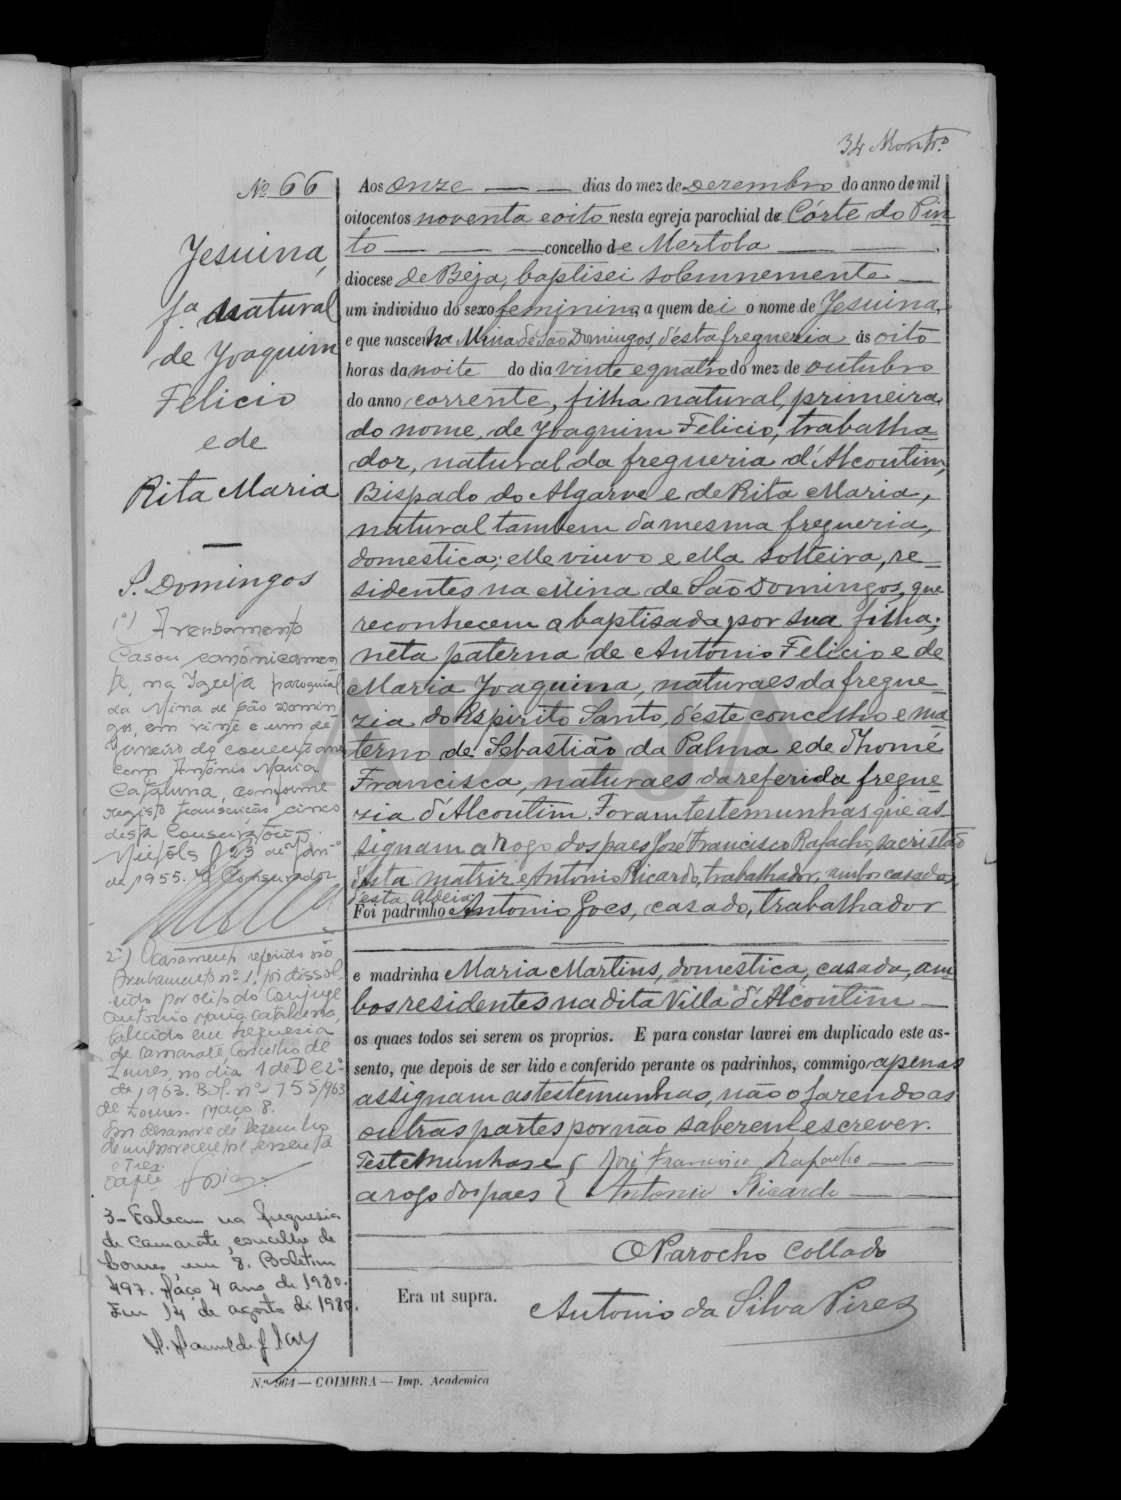 34 Montr.º
Nº 66
Jesuina,
f.ª natural
de Joaquim
Felicio
e de
Rita Maria
S. Domingos
1º) Averbamento
Casou canónicamen-
te, na Igreja paroquial
da Mina de São Domin-
gos, em vinte e um de
Janeiro do corrente ano
com António Maria
Cataluna, conforme
registo transcrição cinco
desta Conservatória.
Mértola, 23 de Jan.º
de 1955. O Conservador
2º) O casamento referido no
averbamento nº 1, foi dissol-
vido por obito do conjuge
Antonio Maria Cataluna,
falecido em freguesia
de Camarate Concelho de
Loures, no dia 1 de Dez.º
de 1963. Bol. nº 755/963
de Loures. Maço 8.
Em dezanove de Dezembro
de mil novecentos e sessenta
e tres.
3- Faleceu na freguesia
de Camarate, concelho de
Loures em 8. Boletim
497. Maço 4 ano de 1980.
Em 14 de agosto de 1980.
Aos onze — — dias do mez de Dezembro do anno de mil
oitocentos noventa e oito nesta egreja parochial de Córte do Pin-
to — — — concelho de Mertola — — .
diocese de Beja, baptisei solemnemente —
um individuo do sexo feminino a quem dei o nome de Jesuina,
e que nasceu na Mina de São Domingos, d'esta freguezia ás oito
horas da noite do dia vinte e quatro do mez de outubro
do anno corrente, filha natural, primeira
do nome, de Joaquim Felicio, trabalha-
dor, natural da freguezia d'Alcoutim,
Bispado do Algarve e de Rita Maria,
natural tambem da mesma freguezia,
domestica; elle viuvo e ella solteira, re-
sidentes na Mina de São Domingos, que
reconhecem a baptisada por sua filha;
neta paterna de António Felicio e de
Maria Joaquina, naturaes da fregue-
zia do Espirito Santo, d'este concelho e ma-
terno de Sebastião da Palma e de Thomé
Francisca, naturaes da referida fregue-
zia d'Alcoutim. Foram testemunhas que as-
signam a rogo dos paes José Francisco Rafacho, sacristão
d'esta matriz e António Ricardo, trabalhador, ambos casados,
d'esta Aldeia.
Foi padrinho Antonio Goes, casado, trabalhador
e madrinha Maria Martins, domestica, casada, am-
bos residentes na dita Villa d'Alcoutim —
os quaes todos sei serem os proprios. E para constar lavrei em duplicado este as-
sento, que depois de ser lido e conferido perante os padrinhos, commigo apenas
assignam as testemunhas, não o fazendo as
outras partes por não saberem escrever.
Testemunhas e { José Francisco Rafacho —
a rogo dos paes { Antonio Ricardo — —
O Parocho Collado
Era ut supra.
Antonio da Silva Pires
N.º 964 — COIMBRA — Imp. Academica